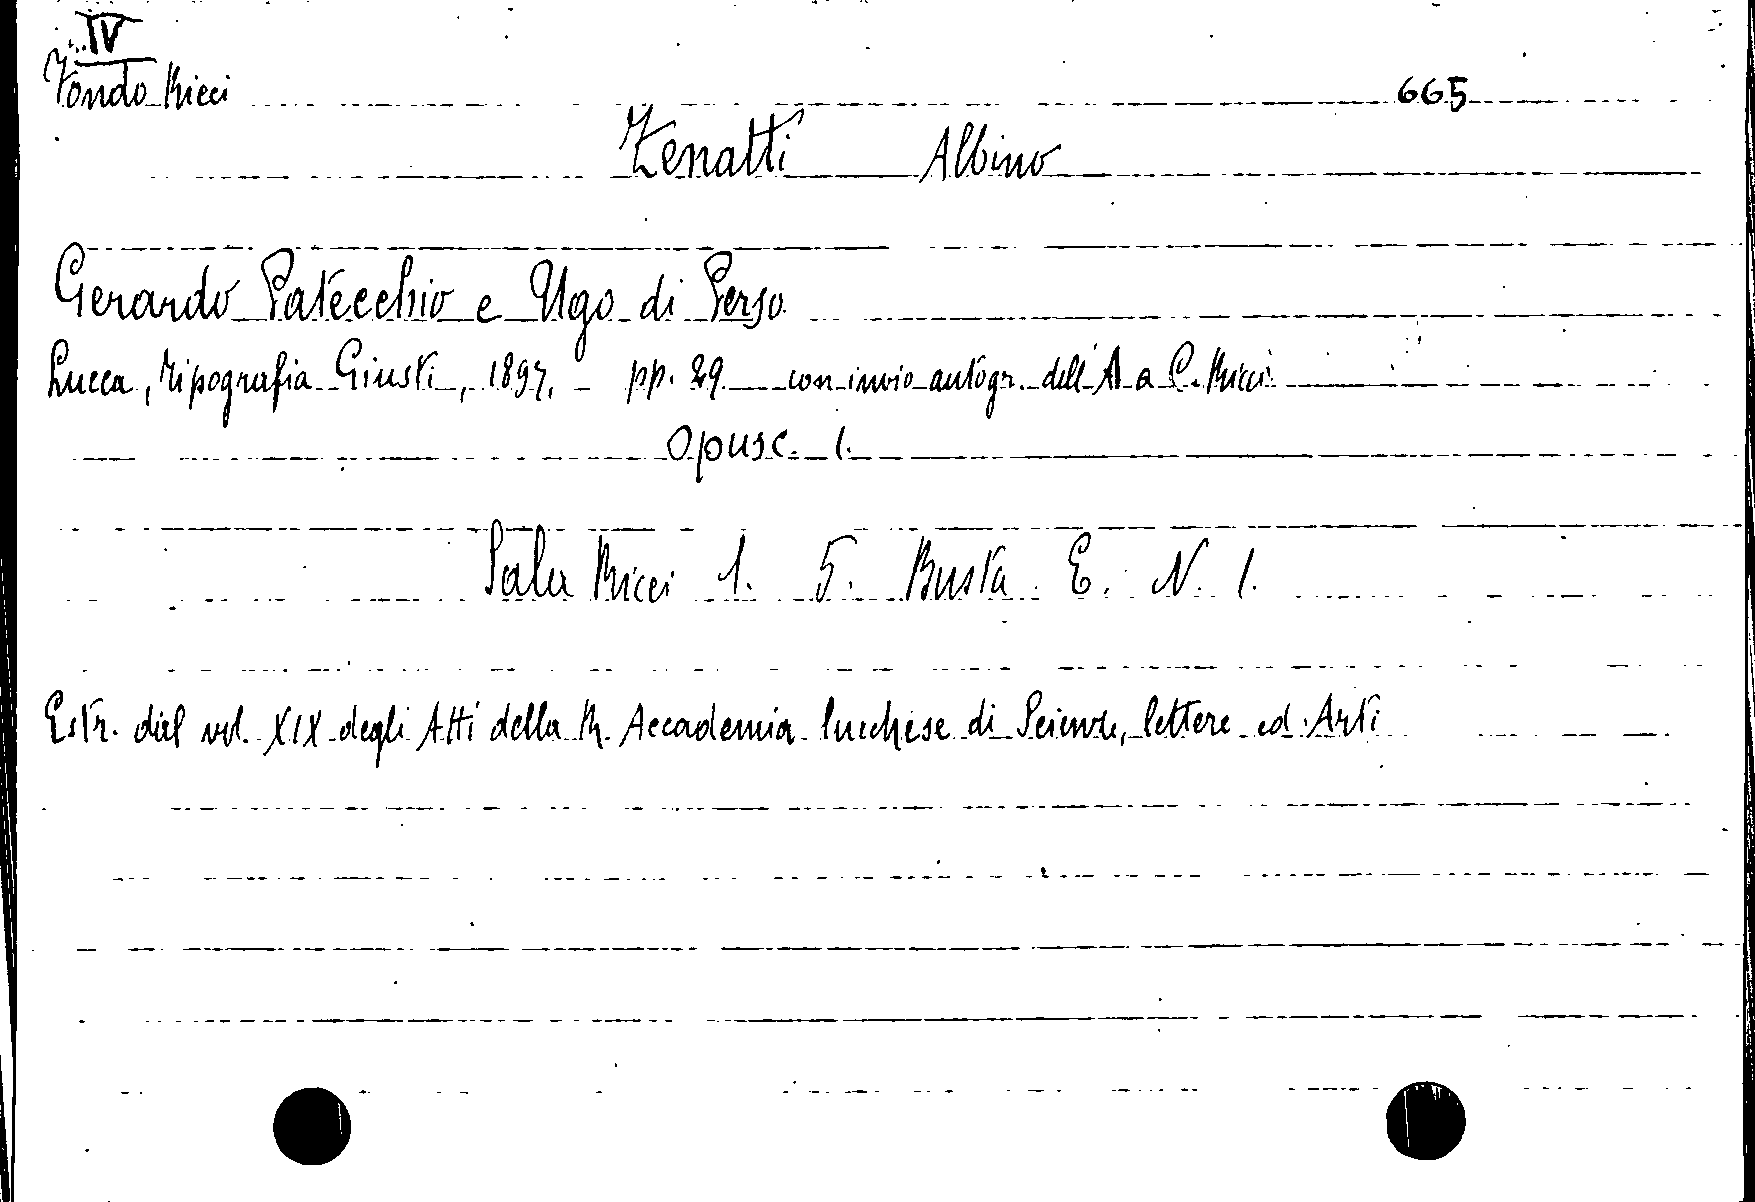 IV
Fondo Ricci 665
Zenatti Albino
Gerardo Patecchio e Ugo di Perso
Lucca, Tipografia Giusti, 1897. - pp. 29 con invio autogr. dell'A a C. Ricci
Opusc. 1.
Sala Ricci 1. 5. Busta E. N. 1.
Estr. dal vol. XIX degli Atti della R. Accademia lucchese di Scienze, lettere ed Arti